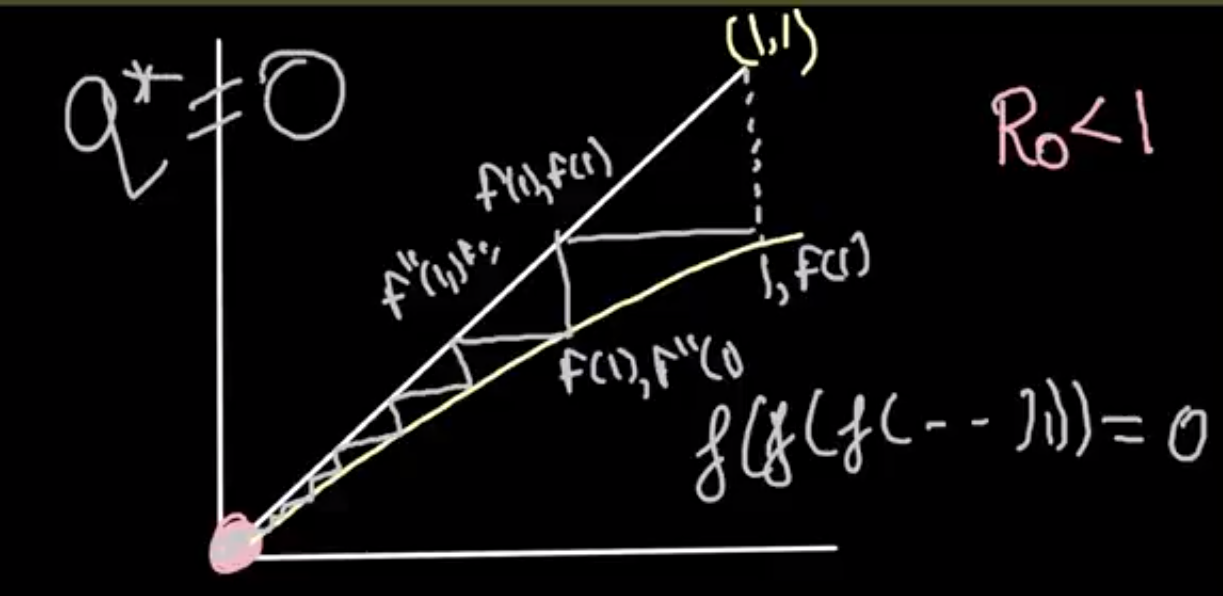 q* = 0
(1,1)
R₀<1
f(1), f(1)
1, f(1)
f(1), f"(1)
f(f(f(--- )))) = 0